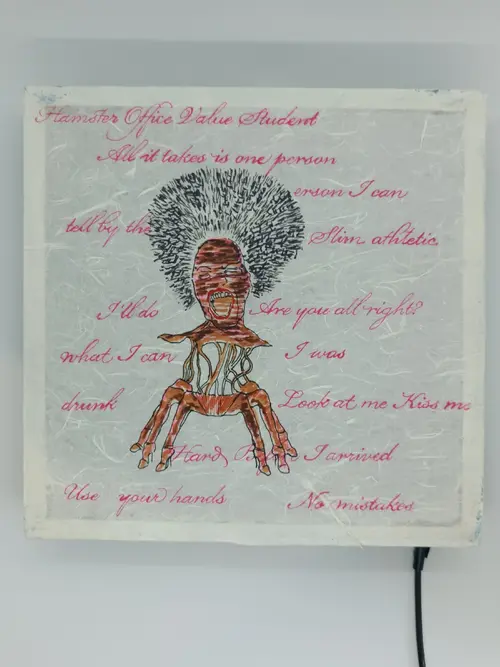 Hamster Office Value Student
All it takes is one person
erson I can
tell by the Slim athletic
I'll do Are you all right?
what I can I was
drunk Look at me Kiss me
Hard I arrived
Use your hands No mistakes